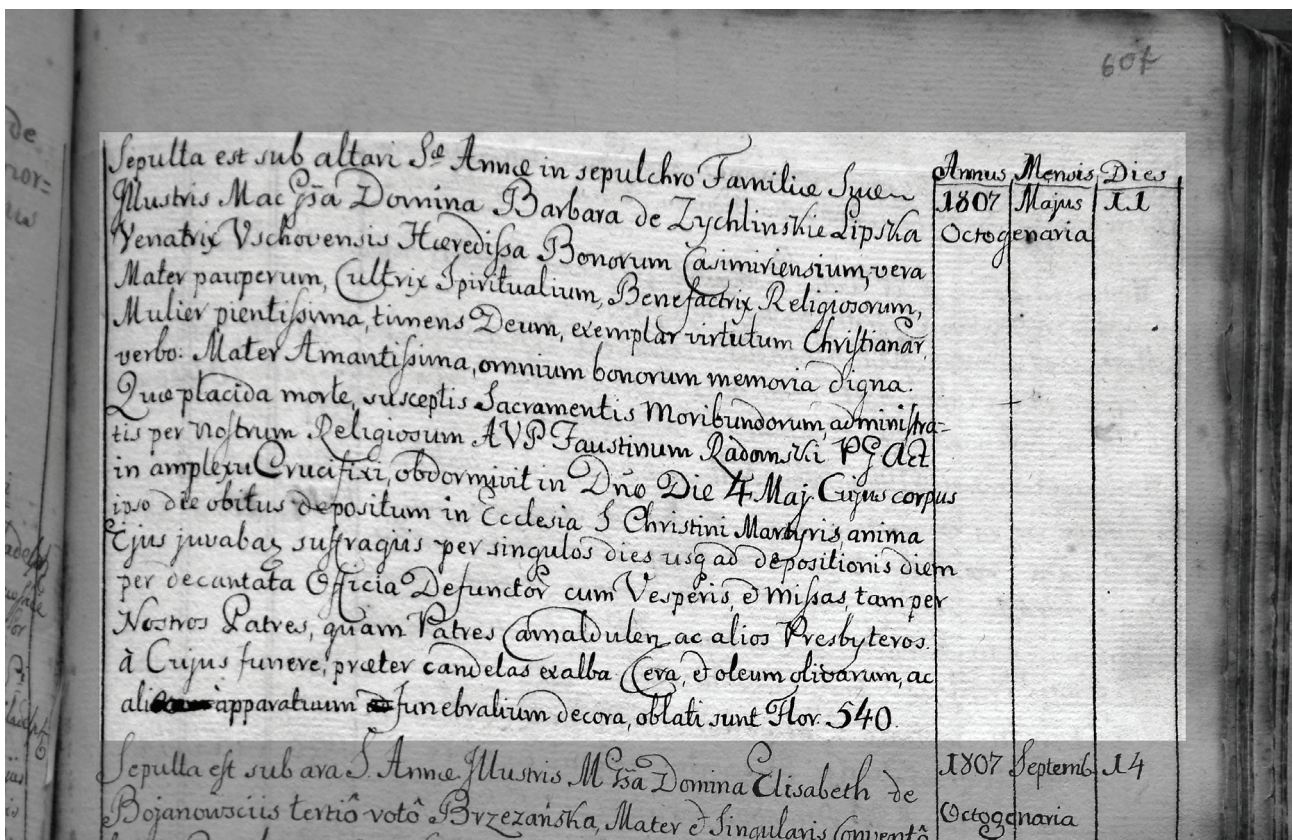 607
Annus Mensis Dies
Sepulta est sub altari S[ae] Annæ in sepulchro Familiæ Suæ
Illustris Mac Gsa Domina Barbara de Zychlinskie Lipska
1807 Majus 11
Venatrix Vschovensis Hæredissa Bonorum Casimiriensium, vera
Octogenaria
Mater pauperum, Cultrix Spiritualium, Benefactrix Religiosorum,
Mulier pientissima, timens Deum, exemplar virtutum Christianar,
verbo: Mater Amantissima, omnium bonorum memoria digna.
Quæ placida morte, susceptis Sacramentis Moribundorum, administra=
tis per Nostrum Religiosum AVP Faustinum Radomski
in amplexu Crucifixi, obdormivit in Dno Die 4 Maj. Cujus corpus
ipso die obitus depositum in Ecclesia S Christini Martyris anima
Ejus juvabaz suffragiis per singulos dies usq ad depositionis diem
per decantata Officia Defunctor cum Vesperis, & Missas, tam per
Nostros Patres, quam Patres Camaldulen ac alios Presbyteros.
à Cujus funere, præter candelas ex alba Cera, & oleum olivarum, ac
apparatuum funebralium decora, oblati sunt Flor. 540.
Sepulta est sub ara S. Annæ Illustris M Gsa Domina Elisabeth de
1807 Septemb. 14
Bojanowsciis tertiô votô Brzezańska, Mater & Singularis Conventô
Octogenaria